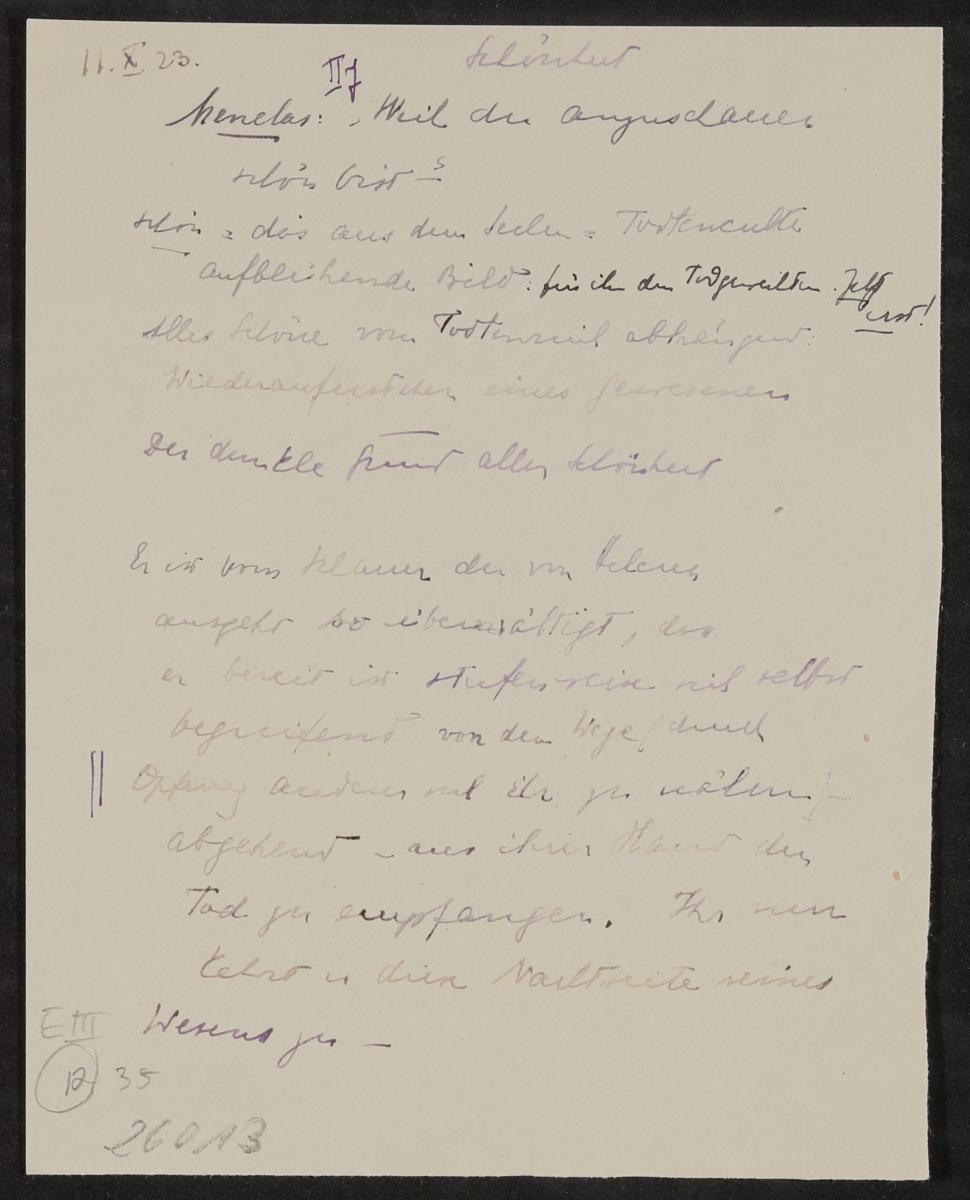 11. X 23.
Schönheit
IIJ
Menelas: „Weil du anzuschauen
schön bist –"
schön = das aus dem Seelen = Todtenculte
aufblühende Bild: für ihn den Todgeweihten. Jetzt
erst!
Alles Schöne vom Todtenreich abhängend:
Wiederauferstehen eines Gewesenen
Der dunkle Grund aller Schönheit
Er ist vom Schauer der von Helena
ausgeht so überwältigt, dass
er bereit ist stufenweise sich selbst
begreifend von dem Wege (durch
Opferung anderer sich ihr zu nähern)
abgehend – aus ihrer Hand den
Tod zu empfangen. Ihr nun
kehrt er diese Nachtseite seines
Wesens zu –
E III
12 35
26013